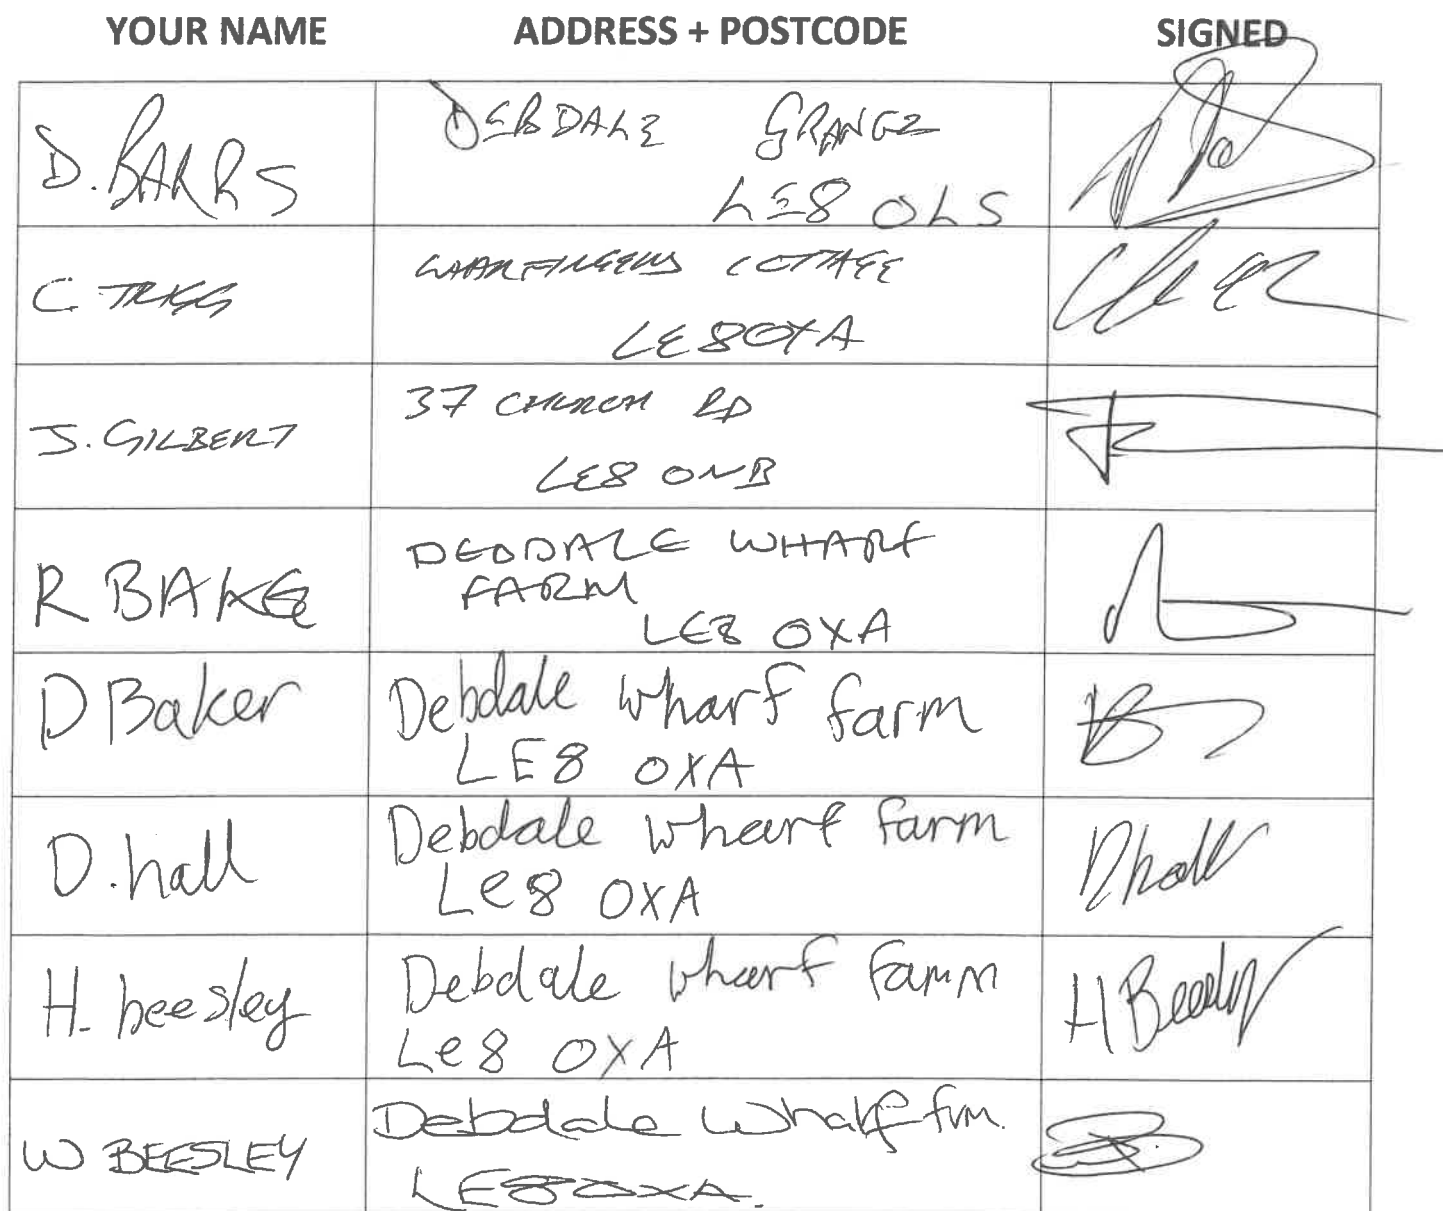 YOUR NAME ADDRESS + POSTCODE SIGNED
D. BARRS DEBDALE GRANGE
LE8 0LS
C TRIGG WHARFINGERS COTTAGE
LE8 0XA
J. GILBERT 37 CHURCH RD
LE8 0NB
R BAKE DEBDALE WHARF
FARM
LE8 0XA
D Baker Debdale wharf farm
LE8 0XA
D. hall Debdale wharf farm Dhall
Le8 0XA
H. beesley Debdale wharf farm H Beesley
Le8 0XA
W BEESLEY Debdale Wharf frm.
LE8 0XA.